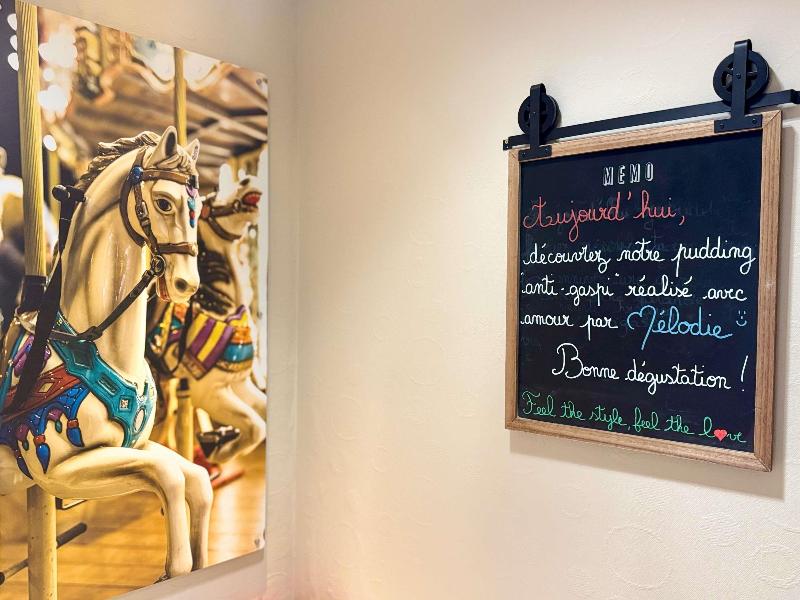 MEMO
Aujourd'hui,
découvrez notre pudding
"anti-gaspi" réalisé avec
amour par Mélodie :)
Bonne dégustation !
Feel the style, feel the l❤ve